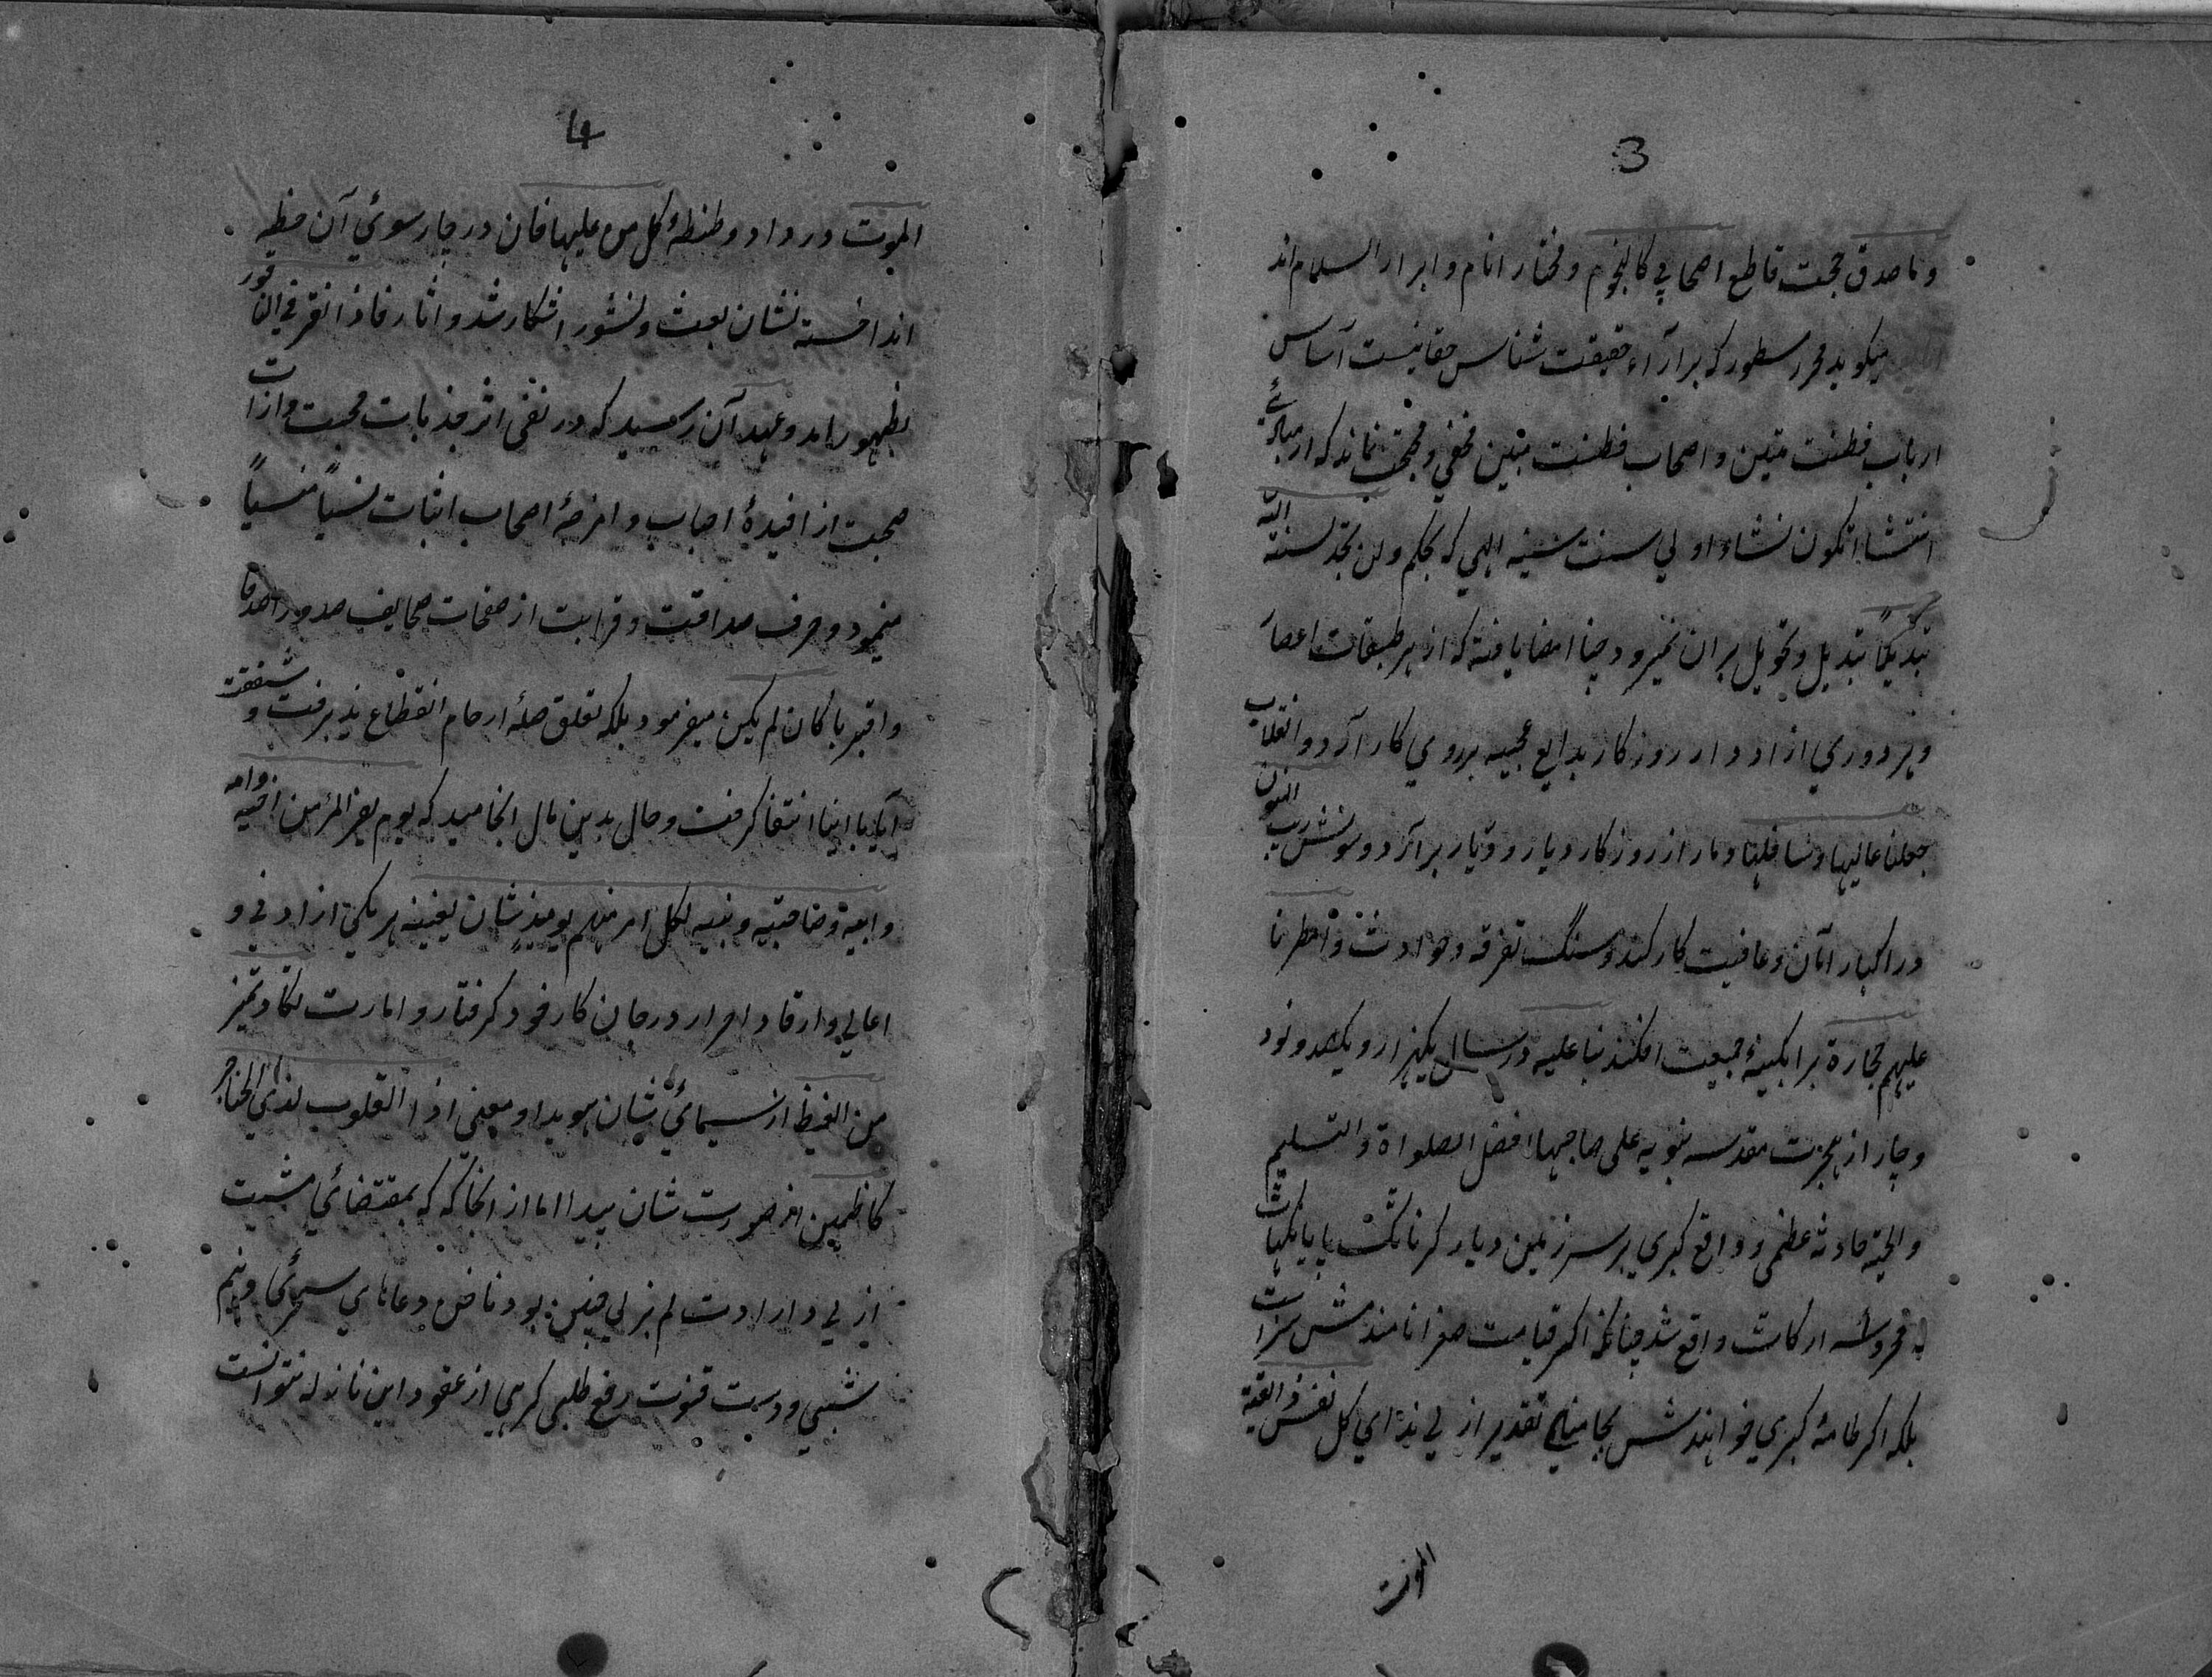 3
و ما صدق حجت قاطع اصحابي كالنجوم و مختار انام و ابرار السلام اند
ميكويد محرر سطور كه برآراء حقيقت شناس حقانيست آساس
ارباب فطنت متين و اصحاب فطنت مبين مخفي و محتجب نماند كه از
انتشا اتكون نشاء اولي سنت سنيه الهي كه بحكم ولن تجد لسنة الله
تبديلاً تبديل و تحويل بران نميرود چنان امضا يافته كه از هر طبقات اعصار
و هر دوري از ادوار روزكار بدايع عجيبه بروي كار آرد و انقلاب
جعلنا عاليها و سافلها و مار از روزكار ديار و ديار برآرد و سوزش ريب المنون
در اكبار امان و عافيت كار كند و سنگ تفرقه و حوادث و امطرنا
عليهم حجارة برابكينۀ جمعيت افكند بنا عليه در سال يكهزار و يكصد و نود
و چار از هجرت مقدسه نبويه على صاحبها افضل الصلواة والتسليم
والتحية حادثه عظمى و واقع كبري بر سرزمين ديار كرناتك پايانكهات
به محروسه اركات واقع شد چنانكه اكر قيامت صغرا نامندش سزاست
بلكه اكر طامۀ كبري خوانندش بجا منادي تقدير ازلي نداي كل نفس ذائقة
الموت
4
الموت در داد و طنطنۀ كل من عليها فان در چار سوئي آن خطه
انداخته نشان بعث و نشور اشكار شد و اثار فاذا نقر في الناقور
بظهور امد و عهد آن رسيد كه در نفى اثر جذبات محبت و ازات
صحبت از افيدۀ احباب و امزجۀ اصحاب اثبات نسياً منسياً
مينمود و حرف صداقت و قرابت از صفحات صحايف صدور اصدقا
و اقربا كان لم يكن ميفرمود بلكه تعلق صلۀ ارحام انقطاع پذيرفت و شفقت
آبا با ابنا انتفا كرفت و حال بدين مال انجاميد كه يوم يفر المرء من اخيه وامه
وابيه وصاحبته وبنيه لكل امر منهم يوميذٍ شان يغنيه هر يكي از ادني و
اعالي و ارقا و احرار درجان كار خود كرفتار و امارت تكاد تميز
من الغيظ از سيمائي شان هويدا و معني اذ القلوب لدي الحناجر
كاظمين از صورت شان پيدا اما از انجا كه كه بمقتضائي مشيت
ازلي و ارادت لم يزلي چنين بود ناخن دعاهاي سحرگاهي و نيم
شبي و دست قنوت رفع طلبي كرهي از عقود اين نازله نتوانست